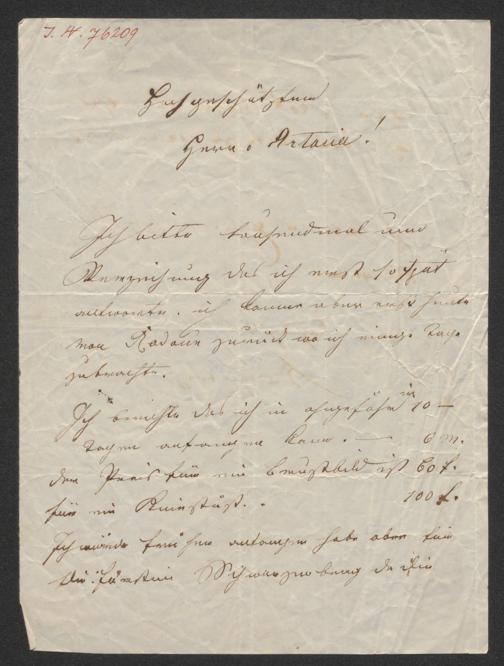 J. N. 76209
Hochgeschätzter
Herr v Artaria!
Ich bitte tausendmal um
Verzeichung das ich erst so spät
antworte. ich komme aber erst heute
von Rodaun zurück wo ich einige Tage
zubrachte.
Ich berichte das ich in ohngefähr in 10 –
Tagen anfangen kann. —
der Preis für ein Brustbild ist 60 f.
für ein Kniestück. 100 f.
Ich würde früher anfangen habe aber für
die Fürstin Schwarzenberg die